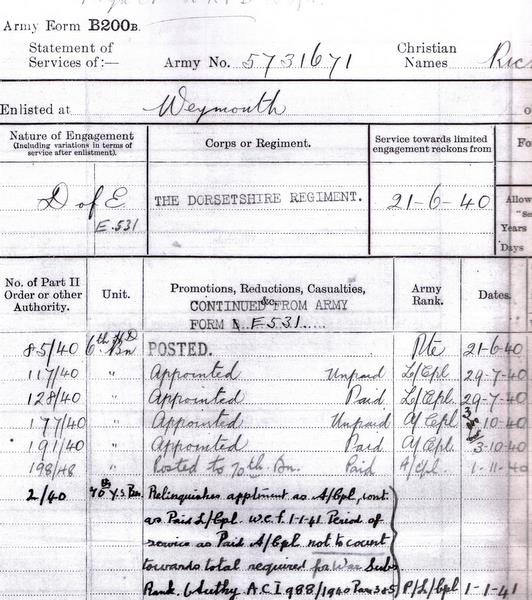 Army Form B200B.
Statement of Services of:— Army No. 5731671 Christian Names Ric
Enlisted at Weymouth
Nature of Engagement (Including variations in terms of service after enlistment). Corps or Regiment. Service towards limited engagement reckons from Fo
D of E THE DORSETSHIRE REGIMENT. 21-6-40 Allow
E.531 "Se
Years
Days
No. of Part II Order or other Authority. Unit. Promotions, Reductions, Casualties, &c. Army Rank. Dates.
CONTINUED FROM ARMY
FORM E531
85/40 6th H D Bn POSTED. Pte 21-6-40
117/40 " Appointed Unpaid L/Cpl 29-7-40
128/40 " Appointed Paid L/Cpl. 29-7-40
177/40 " Appointed Unpaid A/Cpl 10-40
191/40 " Appointed Paid A/Cpl. 3-10-40
198/ " Posted to 70th. Bn. Paid A/Cpl. 1-11-40
2/40 70th Y.S. Bn. Relinquishes apptment as A/Cpl, cont.
as Paid L/Cpl. w.e.f. 1-1-41 Period of
service as Paid A/Cpl not to count
towards total required for War Subs
Rank. (Authy. A.C.I 988/1940 Para 385) P/L/Cpl 1-1-41